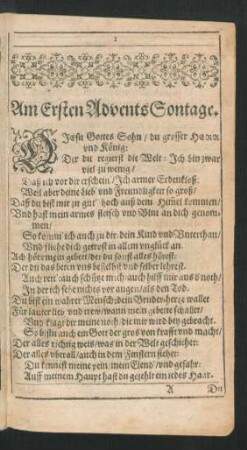 1
Am Ersten Advents Sontage.
O Jesu Gottes Sohn / du grosser HERR
vnd König:
Der du regierst die Welt: Ich bin zwar
viel zu wenig /
Daß ich vor dir erschein / Ich armer Erdenkloß:
Weil aber deine lieb vnd Freundligkeit so groß /
Daß du bist mir zu gut / hoch auß dem Himel kommen /
Vnd hast mein armes fleisch vnd Blut an dich genom-
men /
So komm ich auch zu dir / dein Kind vnd Vnterthan /
Vnd fliehe dich getrost in allem vnglück an.
Ach höre mein gebet / der du sonst alles hörest:
Der du das beten vns befiehlst vnd selber lehrest.
Auch rett / auch schütz mich auch hilff mir aus d' noth /
In der ich sehe nichts vor augen / als den Tod.
Du bist ein wahrer Mensch: dein Bruder-hertze wallet
Für lauter lieb / vnd trew / wann mein gebete schallet /
Vnd klagt der meine noth / die mir wird bey gebracht.
So bistu auch ein Gott der gros von krafft vnd macht /
Der alles richtig weis / was in der Welt geschiehet:
Der alles vberall / auch in dem Finstern siehet:
Du kennest meine pein / mein Elend / vnd gefahr:
Auff meinem Haupt hast du gezehlt ein iedes Haar.
A
Du